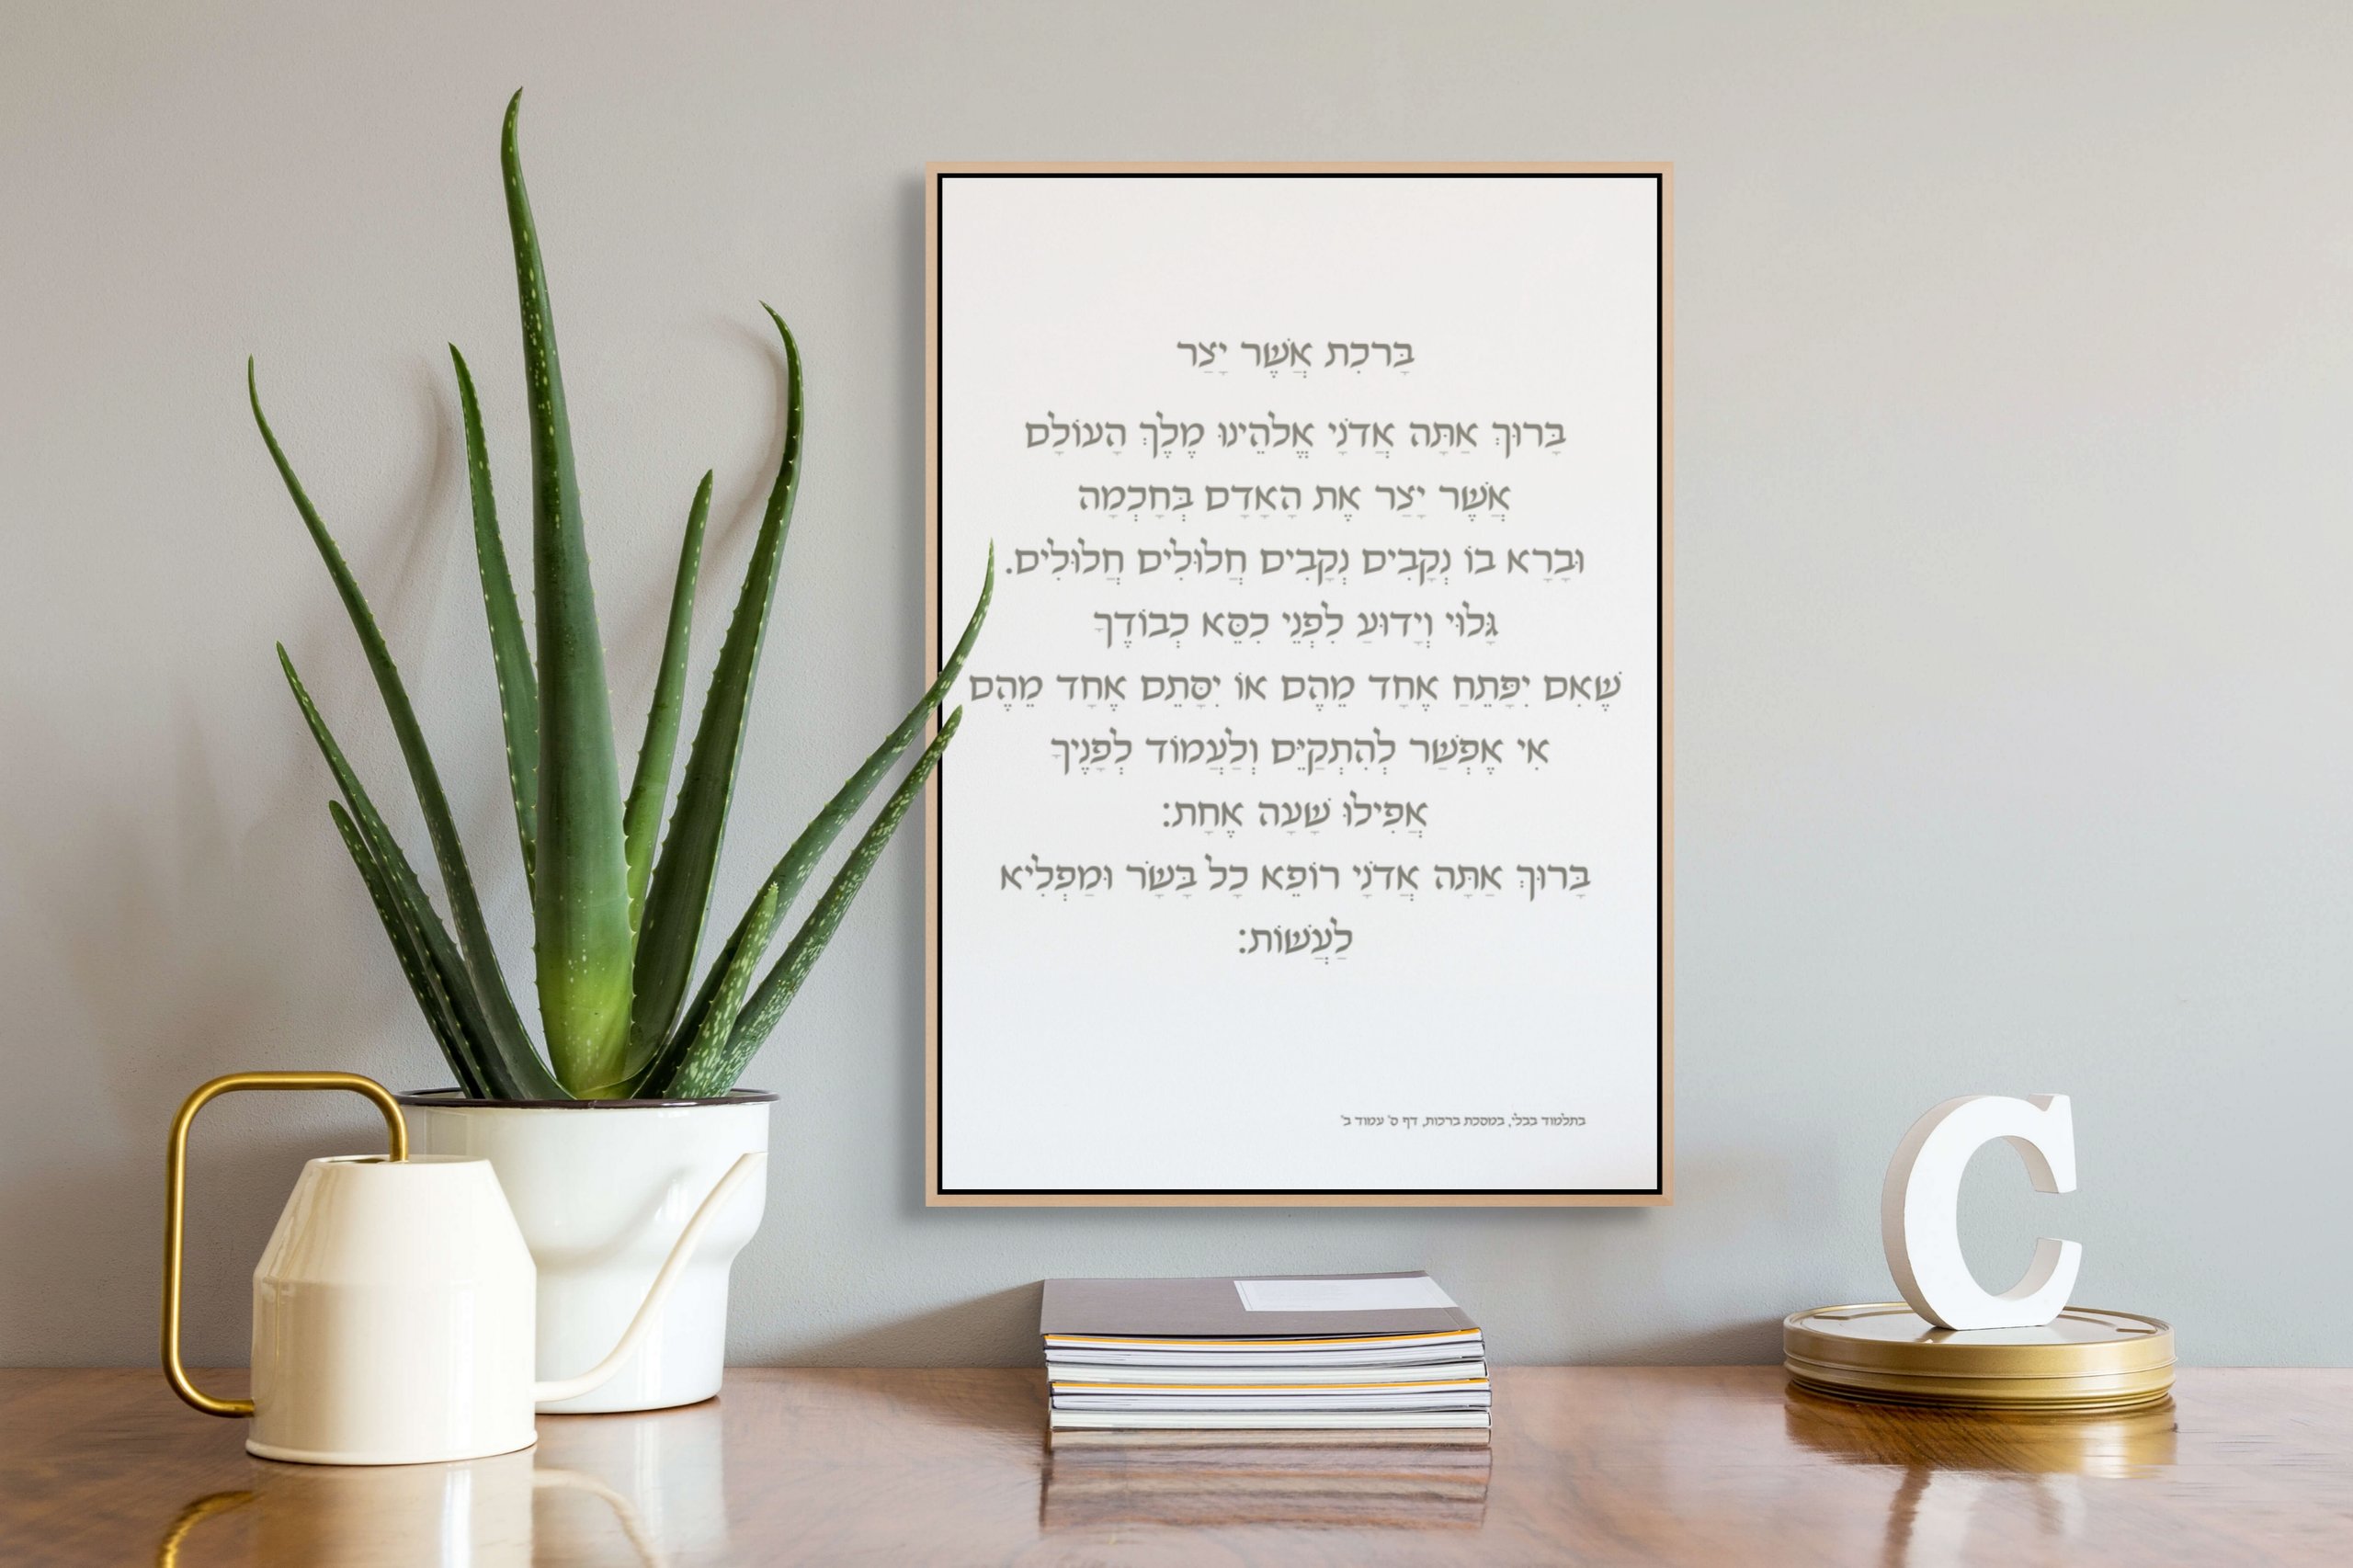 בָּרכִת אֲשֶׁר יָצַר
בָּרוּךְ אַתָּה אֲדֹנָי אֱלֹהֵינוּ מֶלֶךְ הָעוֹלָם
אֲשֶׁר יָצַר אֶת הָאָדָם בְּחָכְמָה
וּבָרָא בוֹ נְקָבִים נְקָבִים חֲלוּלִים חֲלוּלִים.
גָּלוּי וְיָדוּעַ לִפְנֵי כִסֵּא כְבוֹדֶךָ
שֶׁאִם יִפָּתֵחַ אֶחָד מֵהֶם אוֹ יִסָּתֵם אֶחָד מֵהֶם
אִי אֶפְשַׁר לְהִתְקַיֵּם וְלַעֲמוֹד לְפָנֶיךָ
אֲפִילוּ שָׁעָה אֶחָת:
בָּרוּךְ אַתָּה אֲדֹנָי רוֹפֵא כָל בָּשָׂר וּמַפְלִיא
לַעֲשׂוֹת:
בתלמוד בבלי, במסכת ברכות, דף ס' עמוד ב'
C